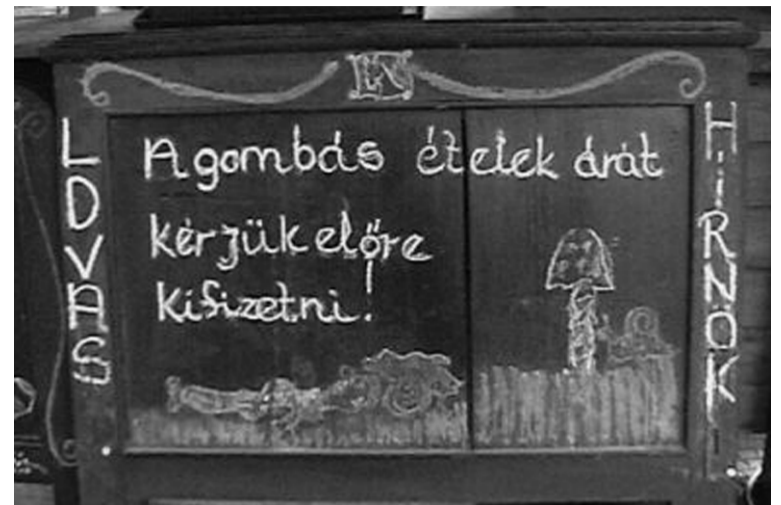 LOVAS
A gombás ételek árát
kérjük előre
kifizetni!
HÍRNÖK